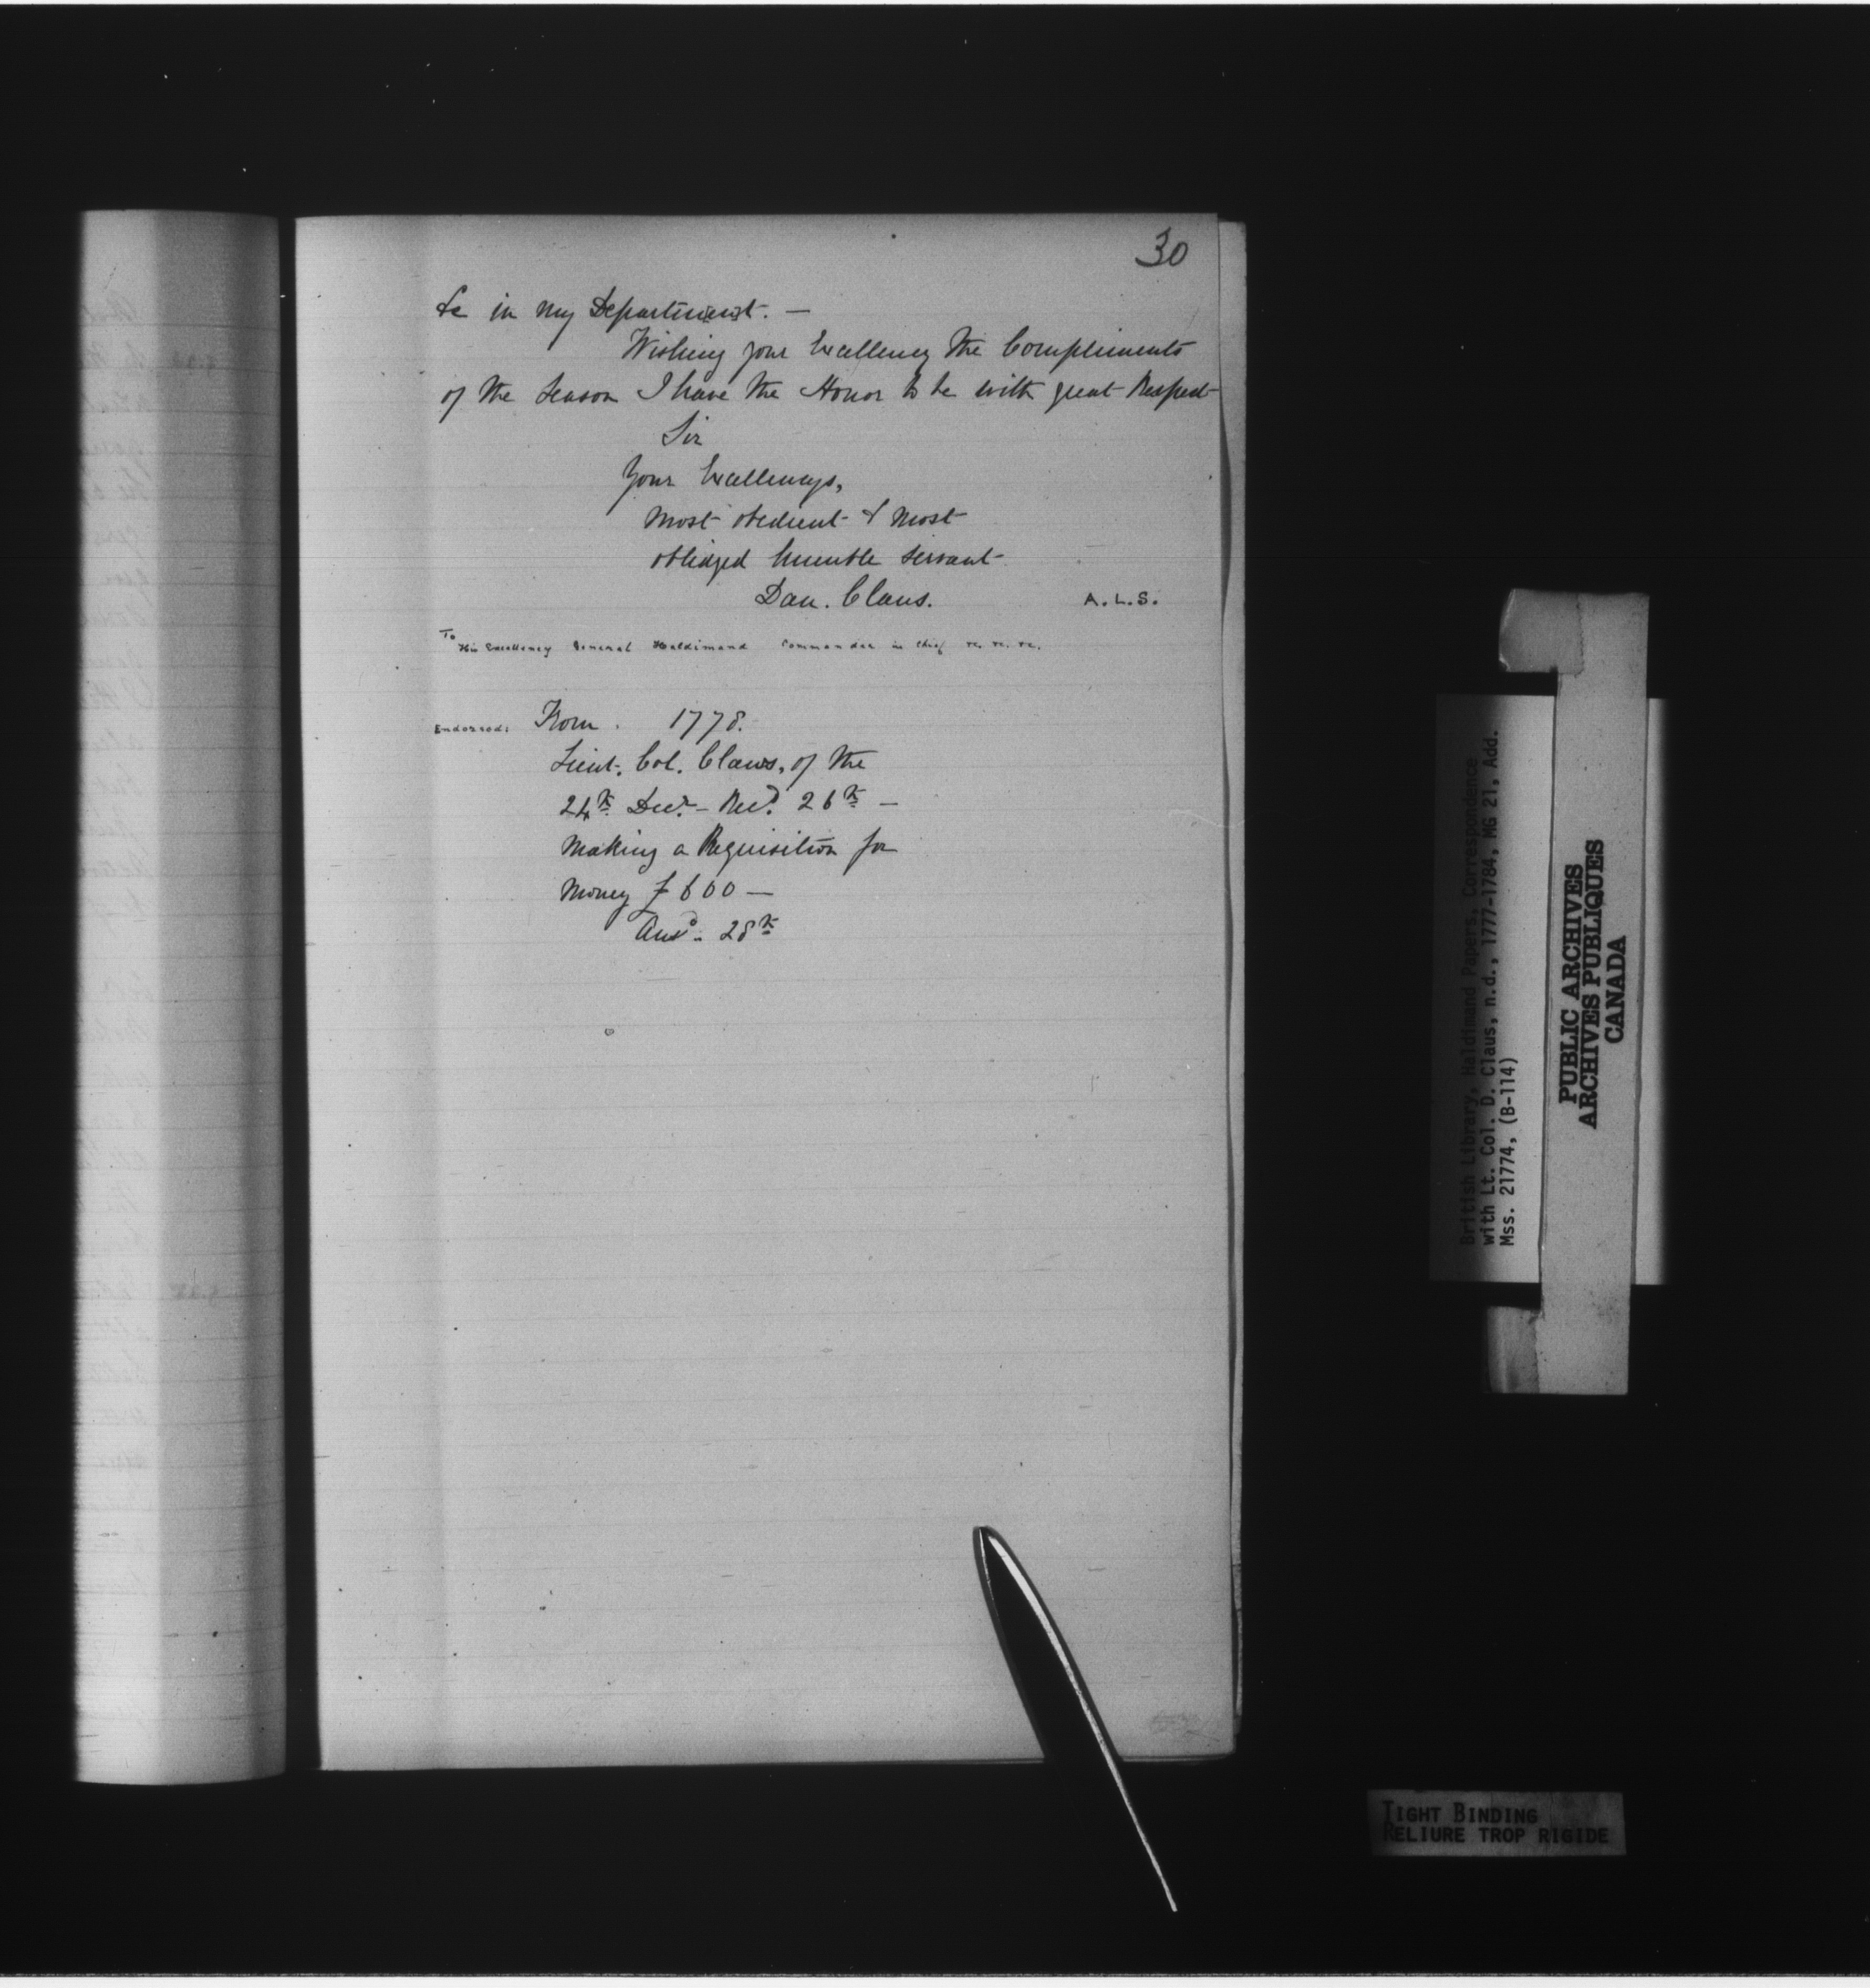 30
&c in my Department. —
Wishing your Excellency the Compliments
of the Season I have the Honor to be with great Respect
Sir
Your Excellencys,
most obedient & most
obliged humble servant
Dan. Claus.
A.L.S.
To His Excellency General Haldimand Commander in Chief &c. &c. &c.
Endorsed: From 1778.
Lieut. Col. Claus, of the
24th Decr. — Recd. 26th —
making a Requisition for
Money £600 —
Ansd. 28th
British Library, Haldimand Papers, Correspondence
with Lt. Col. D. Claus, n.d., 1777-1784, MG 21, Add.
Mss. 21774, (B-114)
PUBLIC ARCHIVES
ARCHIVES PUBLIQUES
CANADA
TIGHT BINDING
RELIURE TROP RIGIDE